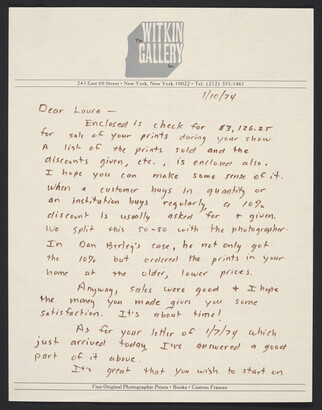 The
WITKIN
GALLERY
Inc.
243 East 60 Street • New York, New York 10022 • Tel: (212) 355-1461
1/10/74
Dear Laura —
Enclosed is check for $3,126.25
for sale of your prints during your show.
A list of the prints sold and the
discounts given, etc., is enclosed also.
I hope you can make some sense of it.
When a customer buys in quantity or
an institution buys regularly, a 10%
discount is usually asked for & given.
We split this 50-50 with the photographer.
In Dan Berley's case, he not only got
the 10% but ordered the prints in your
home at the older, lower prices.
Anyway, sales were good & I hope
the money you made gives you some
satisfaction. It's about time!
As for your letter of 1/7/74 which
just arrived today, I've answered a good
part of it above.
It's great that you wish to start on
Fine Original Photographic Prints • Books • Custom Frames